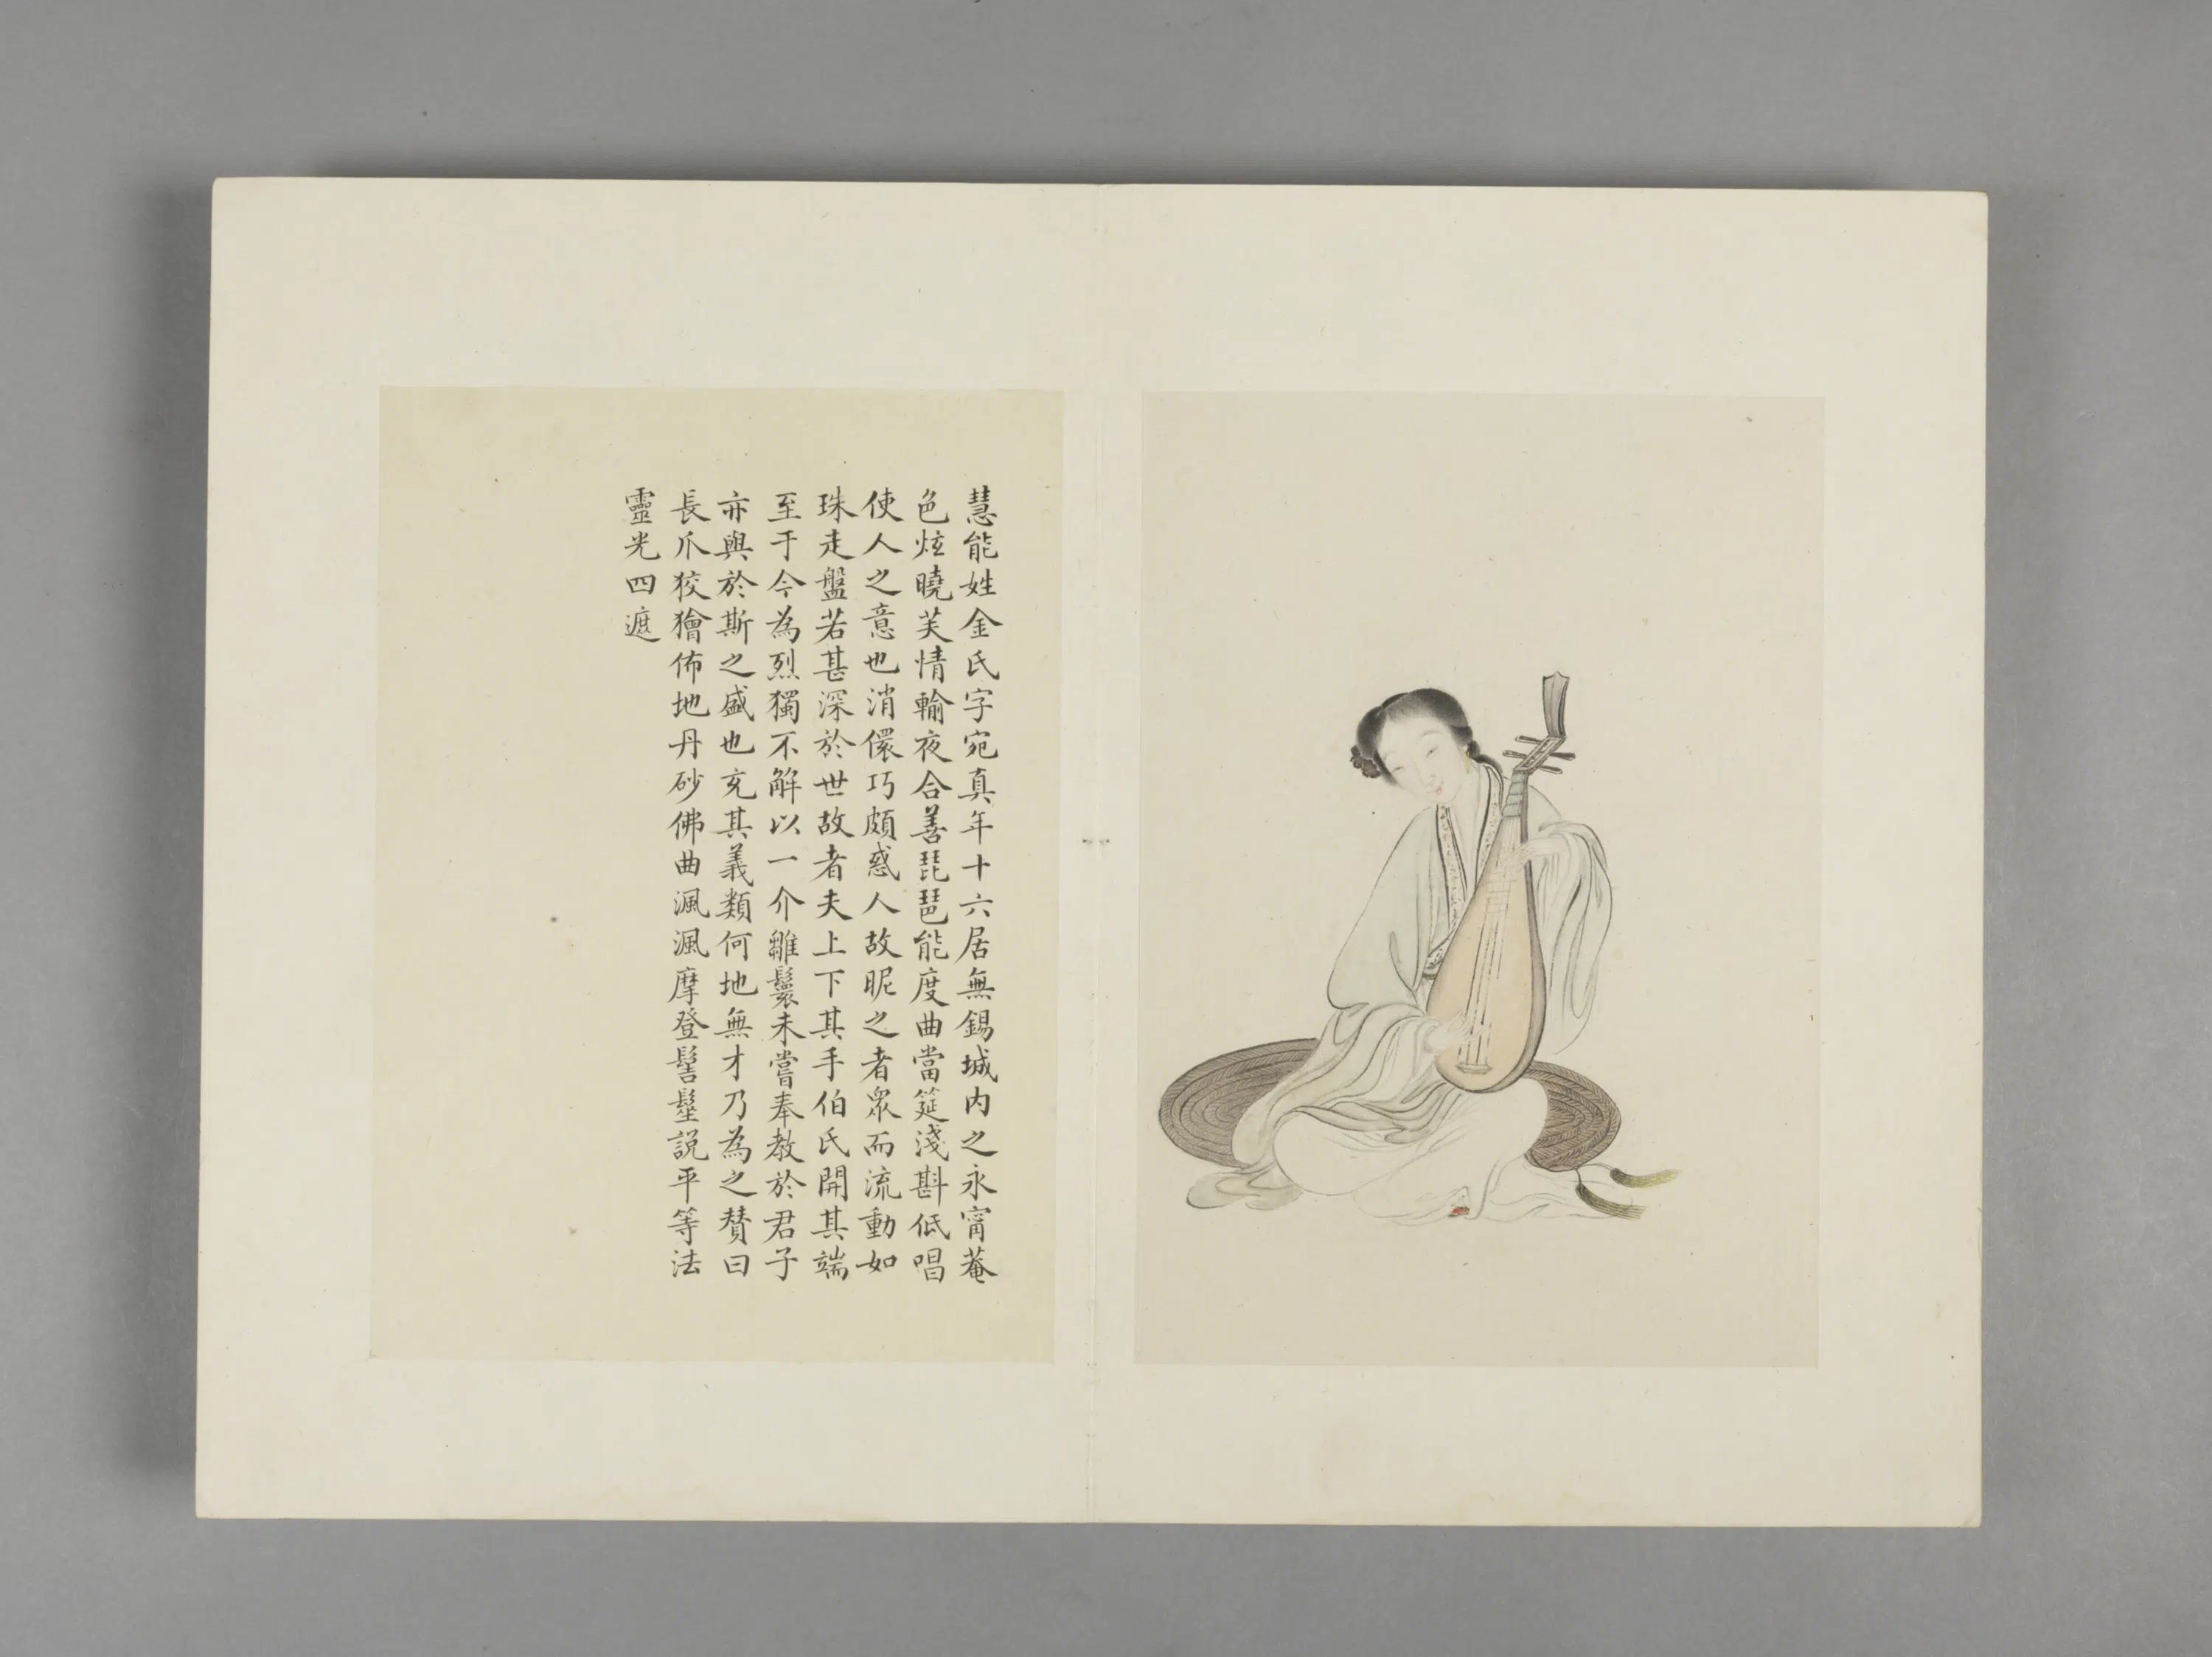 慧能姓金氏字宛真年十六居無錫城内之永甯菴
色炫曉芙情輸夜合善琵琶能度曲當筵淺斟低唱
使人之意也消儇巧頗惑人故昵之者眾而流動如
珠走盤若甚深於世故者夫上下其手伯氏開其端
至于今為烈獨不解以一介雛鬟未嘗奉教於君子
亦與於斯之盛也充其義類何地無才乃為之贊曰
長爪狡獪佈地丹砂佛曲渢渢摩登髻髽説平等法
靈光四遮